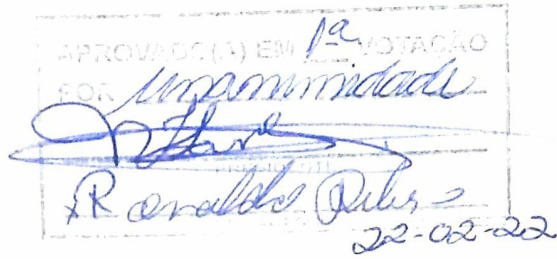 APROVADO(A) EM 1ª VOTAÇÃO
POR Unanimidade
Ronaldo
22-02-22